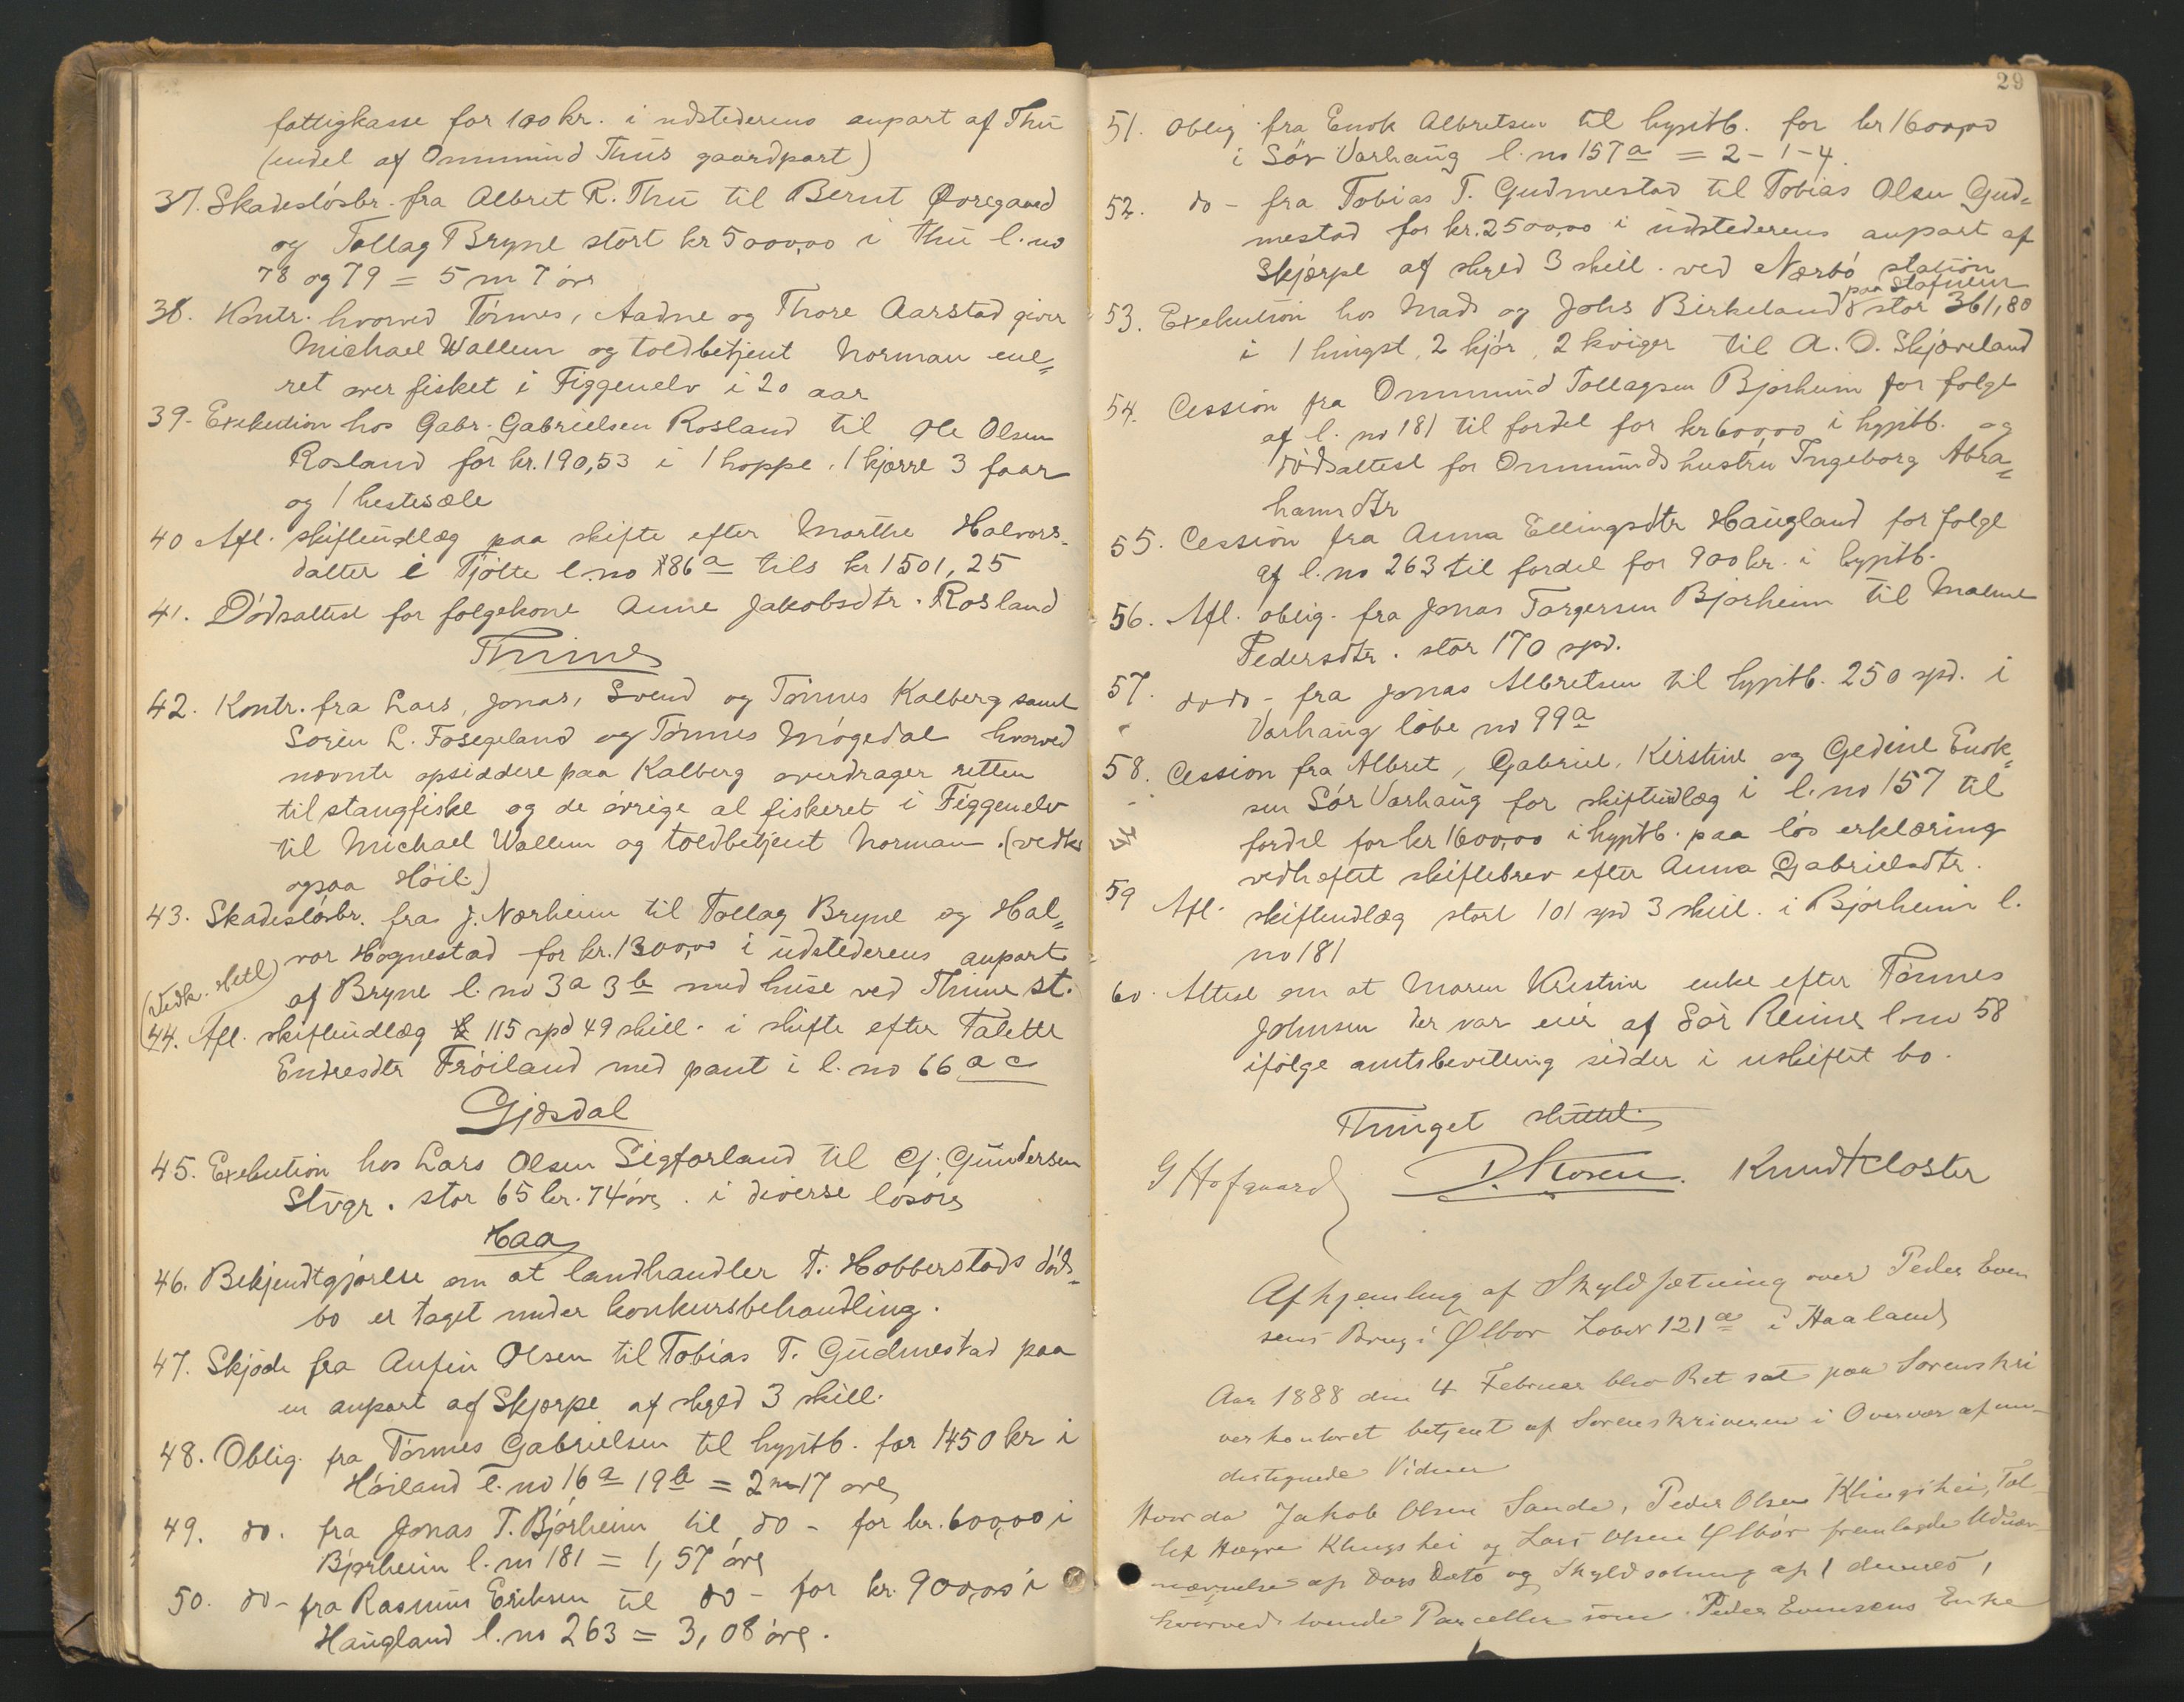 fattigkasse for 100 kr. i udstederens anpart af Thu
(endel af Ommund Thus gaardpart)
37. Skadesløsbr. fra Albret R. Thu til Bernt Øvregaard
og Tollag Bryne stort kr 5000,00 i Thu l. no
78 og 79 = 5 m 7 øre
38. Kontr. hvorved Tönnes, Aadne og Thore Aarstad giver
Michael Wallem og toldbetjent Norman ene=
ret over fisket i Figgenelv i 20 aar
39. Exekution hos Gabr. Gabrielsen Rosland til Ole Olsen
Rosland for kr. 190,53 i 1 hoppe, 1 kjærre 3 faar
og 1 hestesæle
40 Afl. skifteudlæg paa skifte efter Marthe Halvors-
datter i Tjötte l. no 186 a tils kr 1501,25
41. Dödsattest for folgekone Anne Jakobsdtr. Rosland
Thime
42. Kontr. fra Lars, Jonas, Svend og Tönnes Kalberg samt
Sören L. Fosegeland og Tönnes Mögedal hvorved
nævnte opsiddere paa Kalberg overdrager retten
til stangfiske og de övrige al fiskeret i Figgenelv
til Michael Wallem og toldbetjent Norman. (vedk
ogsaa Höil.)
43. Skadeslösbr. fra J. Nærheim til Tollag Bryne og Hal=
vor Hognestad for kr. 1300,00 i udstederens anpart
af Bryne l. no 3a 3b med huse ved Thime st.
(Vedk. Hetl)
44. Afl. skifteudlæg 115 spd 49 skill. i skifte efter Talette
Endresdtr Fröiland med pant i l. no 66 a c
Gjesdal
45. Exekution hos Lars Olsen Sigforland til G. Gundersen
Stvgr. stor 65 kr. 74 öre. i diverse lösöre
Haa
46. Bekjendtgjörelse om at landhandler T. Hobberstads döds-
bo er taget under konkursbehandling.
47. Skjöde fra Anfin Olsen til Tobias T. Gudmestad paa
en anpart af Skjærpe af skyld 3 skill.
48. Oblig. fra Tönnes Gabrielsen til hyptb. for 1450 kr i
Höiland l. no 16 a 19 b = 2 m 17 öre
49. do. fra Jonas T. Bjorheim til do - for kr. 600,00 i
Bjorheim l. no 181 = 1,57 öre
50. do - fra Rasmus Eriksen til do - for kr. 900,00 i
Haugland l. no 263 = 3,08 öre.
29
51. Oblig fra Enok Albretsen til hyptb. for kr 1600,00
i Sör Varhaug l. no 157 a = 2 - 1 - 4.
52. do - fra Tobias T. Gudmestad til Tobias Olsen Gud=
mestad for kr. 2500,00 i udstederens anpart af
Skjærpe af skyld 3 skill. ved Nærbö station
paa Stafnem
53. Exekution hos Mads og Johs Birkeland stor 361,80
i 1 hingst, 2 kjör, 2 kviger til A. O. Skjæveland
54. Cession fra Ommund Tollagsen Bjorheim for folge
af l. no 181 til fordel for kr 600,00 i hyptb. og
dödsattest for Ommunds hustru Ingeborg Abra=
hamsdtr
55. Cession fra Anna Ellingsdtr Haugland for folge
af l. no 263 til fordel for 900 kr. i hyptb.
56. Afl. oblig. fra Jonas Torgersen Bjorheim til Malene
Pedersdtr. stor 170 spd.
57. do do - fra Jonas Albretsen til hyptb. 250 spd. i
Varhaug löbe no 99 a
58. Cession fra Albret, Gabriel, Kirstine og Gedine Enok=
sen Sör Varhaug for skifteudlæg i l. no 157 til
fordel for kr 1600,00 i hyptb. paa lös erklæring
vedheftet skiftebrev efter Anna Gabrielsdtr.
59 Afl. skifteudlæg stort 101 spd 3 skill. i Bjorheim l.
no 181
60. Attest om at Maren Kristine enke efter Tönnes
Johnsen der var eier af Sör Reime l. no 58
ifölge amtsbevilling sidder i uskiftet bo.
Thinget sluttet
G Hofgaard Knud Kloster
Afhjemling af Skyldsætning over Peder Even
sens Brug i Ølbør Lobno 121 a i Haaland
Aar 1888 den 4 Februar blev Ret sat paa Sorenskri
verkontoret betjent af Sorenskriveren i Overvær af un-
dertegnede Vidner
Hvorda Jakob Olsen Sande, Peder Olsen Klingshei, Tol-
lef Hegre Klingshei og Lars Olsen Ølbør fremlagde Udnæv-
nævnelse af Dags Dato og Skyldsætning af 1 dennes,
hvorved tvende Parceller som Peder Evensens Enke